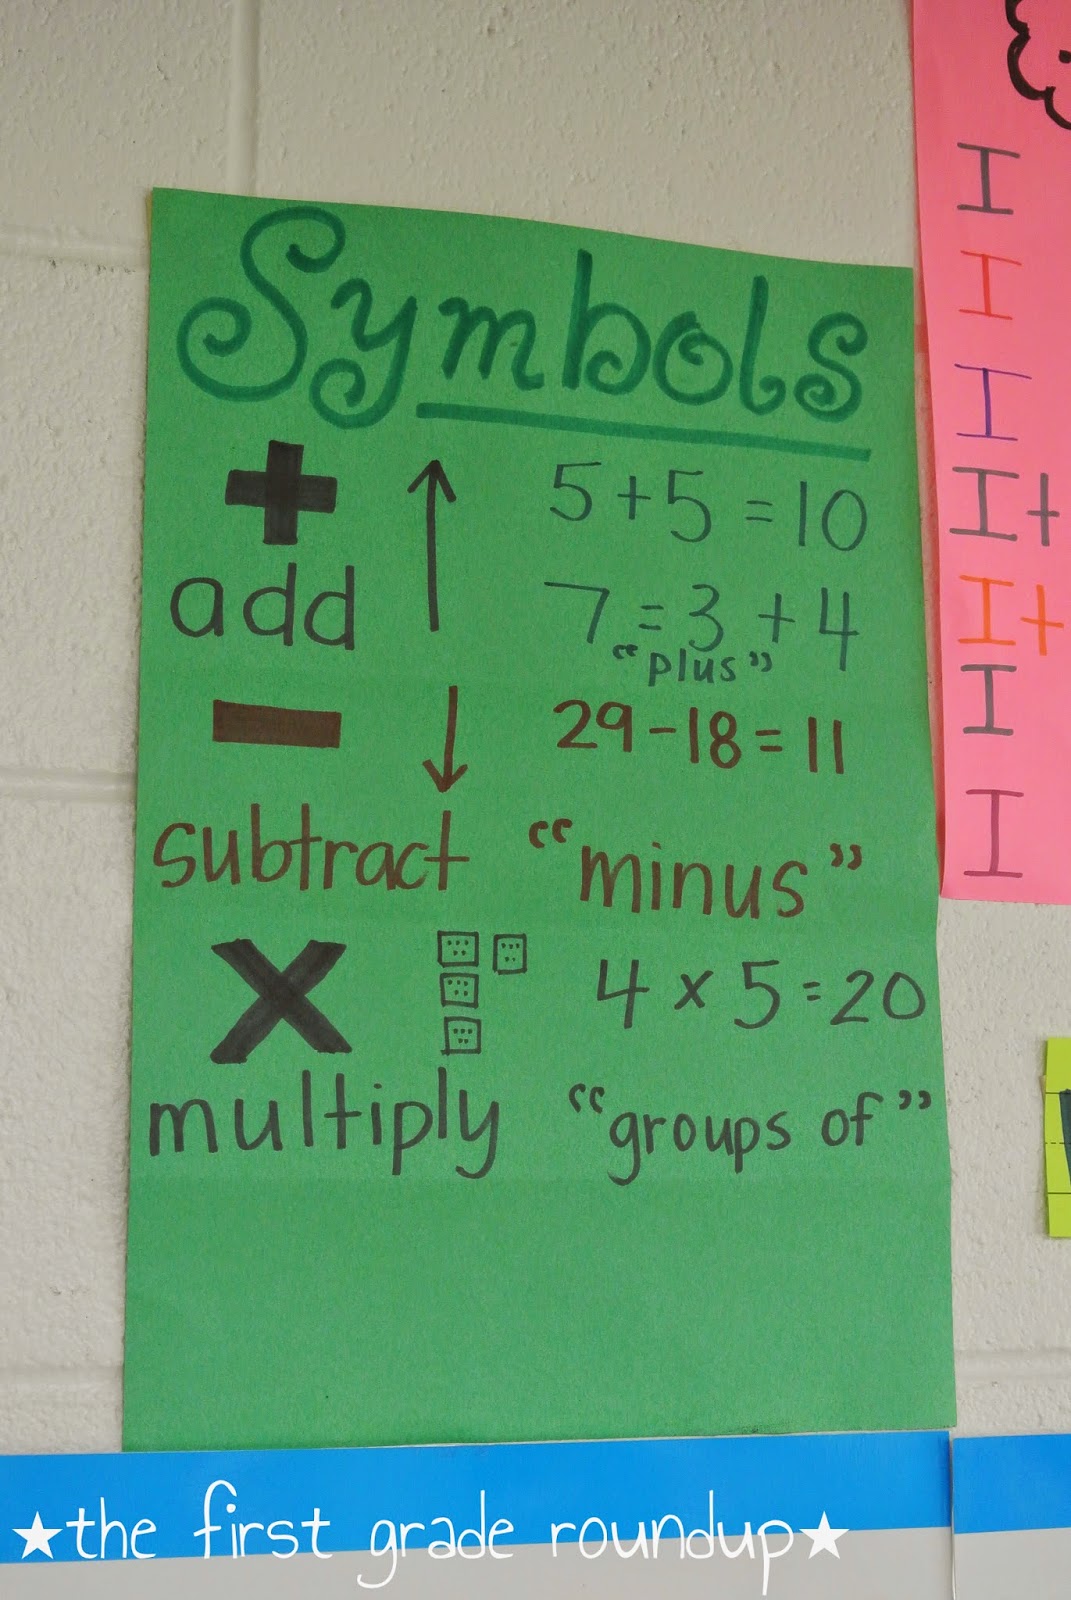 Symbols
+ 5 + 5 = 10
add 7 = 3 + 4
"plus"
- 29 - 18 = 11
subtract "minus"
x 4 x 5 = 20
multiply "groups of"
I
I
I
It
It
I
I
★the first grade roundup★